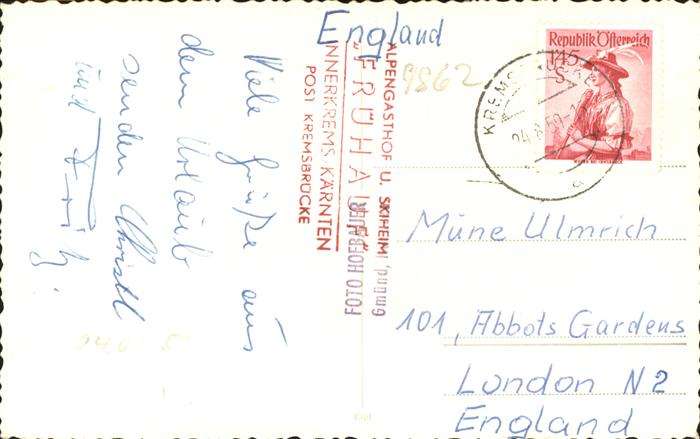 England
Viele Grüße aus
dem Urlaub
senden Christl
und Fritz.
ALPENGASTHOF U. SKIHEIM
„FRÜHAUF“
INNERKREMS, KÄRNTEN
POST KREMSBRÜCKE
FOTO HOEBHIER
Gmünd,
9862
Republik Österreich
1,45
S
KREMS
Müne Ulmrich
101, Abbots Gardens
London N2
England